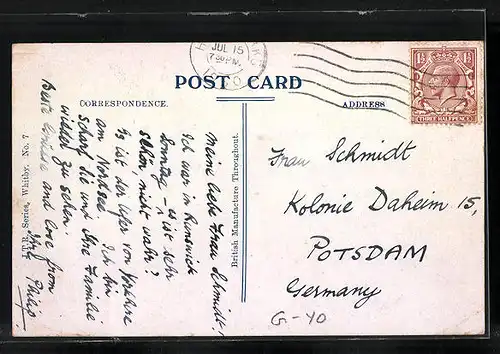 JUL 15
7 30 PM
POST CARD
CORRESPONDENCE.
ADDRESS
1½ 1½
THREE HALFPENCE
British Manufacture Throughout.
Series, Whitby. No.
Meine liebe Frau Schmidt,
Ich war in Runswick
Sonntag – es ist sehr
schön, nicht wahr?
Es ist der Ufer von Yorkshire
am Nordsee. Ich
scharf die und Ihre Familie
wieder zu sehen.
Beste Grüsse and love from
Philip
Frau Schmidt
Kolonie Daheim 15,
POTSDAM
Germany
G-40